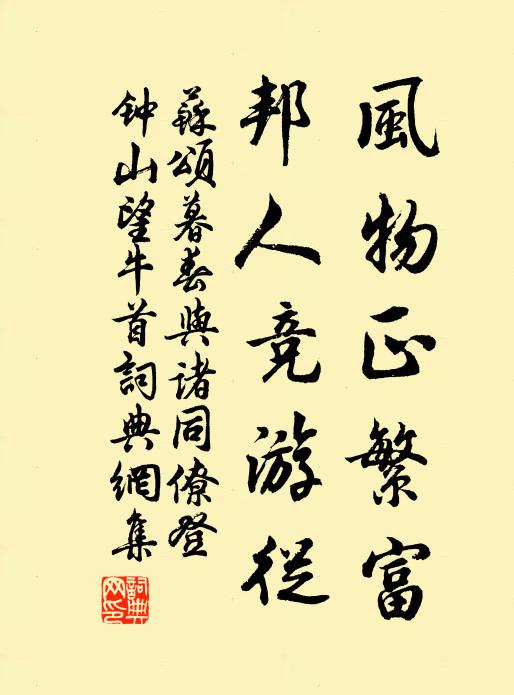 風物正繁富
邦人竞游從
蘇頌暮春與諸同僚登
钟山望牛首詞典網集
詞典
网印